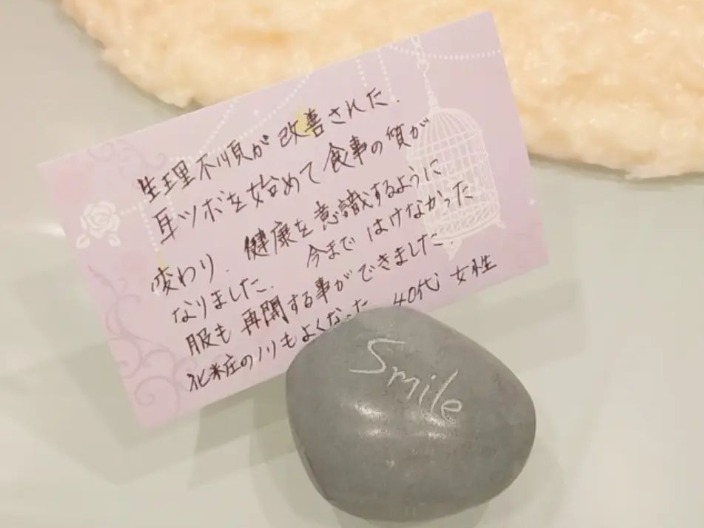 生理不順が改善された.
耳ツボを始めて食事の質が
変わり. 健康を意識するように
なりました. 今まではけなかった
服も再開する事ができました
化粧のノリもよくなった 40代 女性
Smile